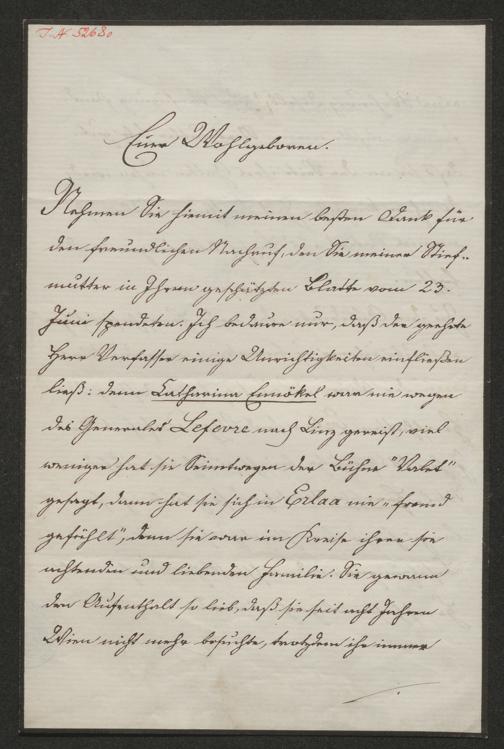 I.N. 52680
Euer Wohlgeboren.
Nehmen Sie hiemit meinen besten Dank für
den freundlichen Nachruf, den Sie meiner Stief-
mutter in Ihrem geschätzten Blatte vom 23.
Juni spendeten. Ich bedaure nur, daß der geehrte
Herr Verfasser einige Unrichtigkeiten einfließen
ließ: denn Catharina Ennökel war nie wegen
des Generales Lefevre nach Linz gereist, viel
weniger hat sie Seinetwegen der Bühne "Valet"
gesagt, dann hat sie sich in Erlaa nie "fremd
gefühlt", denn sie war im Kreise ihrer sie
achtenden und liebenden Familie. Sie gewann
den Aufenthalt so lieb, daß sie seit acht Jahren
Wien nicht mehr besuchte, trotzdem ihr immer